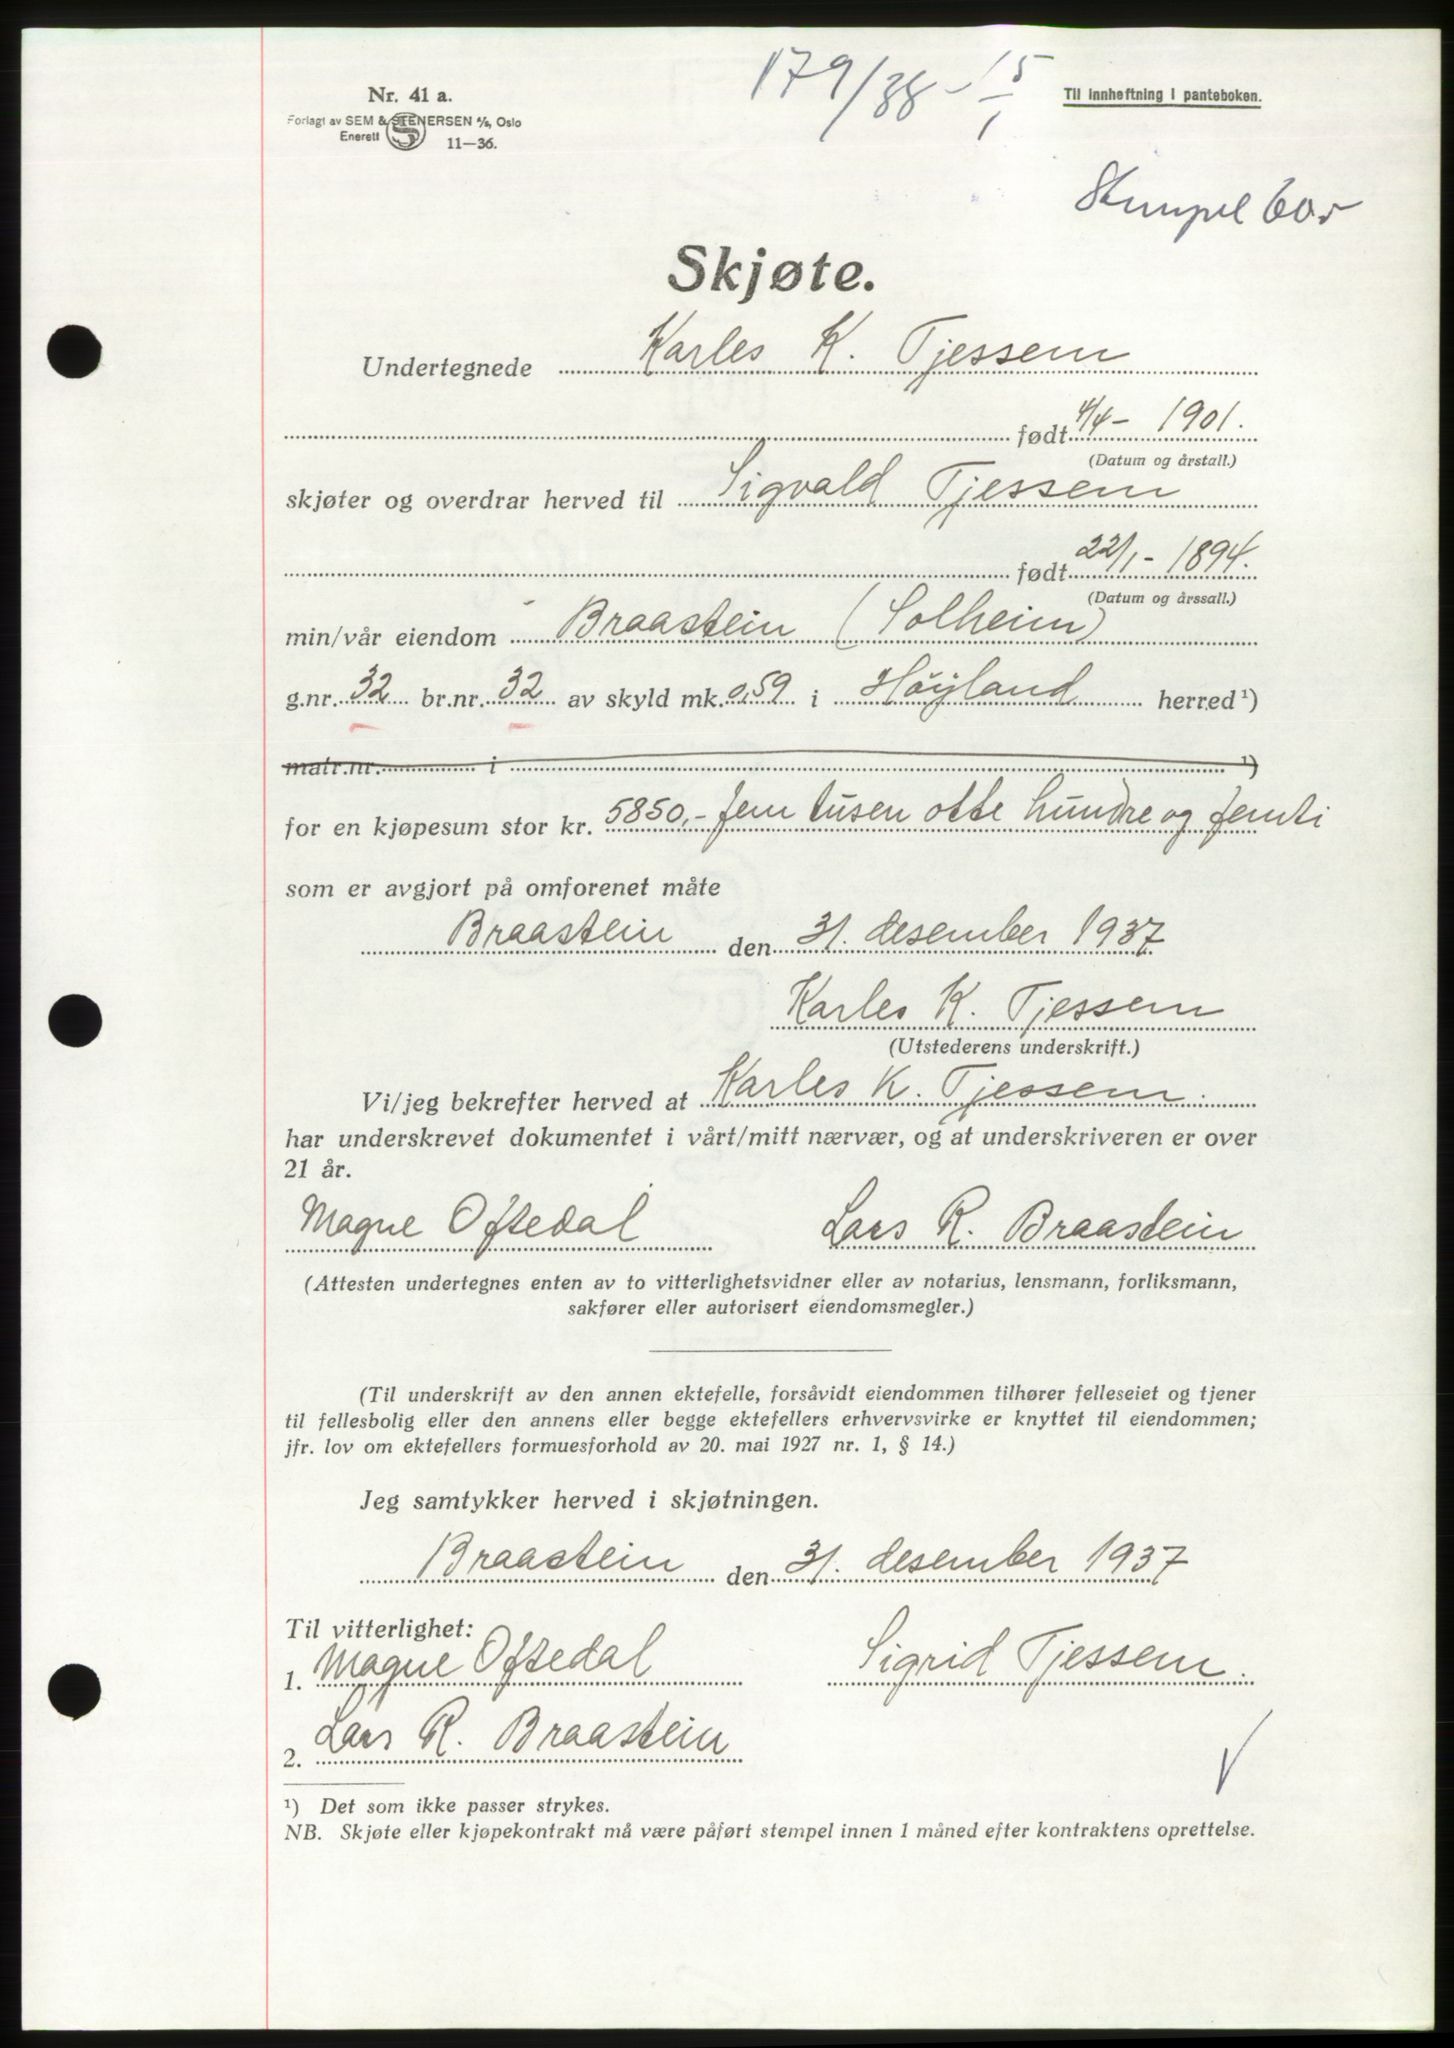 179/38 - 15/1
Nr. 41 a.
Til innheftning i panteboken.
Forlagt av SEM & STENERSEN A/S, Oslo
Enerett S 11—36.
Stempel 60,-
Skjøte.
Undertegnede Karles K. Tjessem
født 4/4- 1901.
(Datum og årstall.)
skjøter og overdrar herved til Sigvald Tjessem
født 22/1- 1894.
(Datum og årssall.)
min/vår eiendom Braastein (Solheim)
g.nr. 32 br.nr. 32 av skyld mk. 0,59 i Høyland herred ¹)
matr.nr. i ¹)
for en kjøpesum stor kr. 5850,- fem tusen otte hundre og femti
som er avgjort på omforenet måte
Braastein den 31. desember 1937
Karles K. Tjessem
(Utstederens underskrift.)
Vi/jeg bekrefter herved at Karles K. Tjessem.
har underskrevet dokumentet i vårt/mitt nærvær, og at underskriveren er over
21 år.
Magne Oftedal Lars R. Braastein
(Attesten undertegnes enten av to vitterlighetsvidner eller av notarius, lensmann, forliksmann,
sakfører eller autorisert eiendomsmegler.)
(Til underskrift av den annen ektefelle, forsåvidt eiendommen tilhører felleseiet og tjener
til fellesbolig eller den annens eller begge ektefellers erhvervsvirke er knyttet til eiendommen;
jfr. lov om ektefellers formuesforhold av 20. mai 1927 nr. 1, § 14.)
Jeg samtykker herved i skjøtningen.
Braastein den 31. desember 1937
Til vitterlighet:
1. Magne Oftedal Sigrid Tjessem.
2. Lars R. Braastein
¹) Det som ikke passer strykes.
NB. Skjøte eller kjøpekontrakt må være påført stempel innen 1 måned efter kontraktens oprettelse.